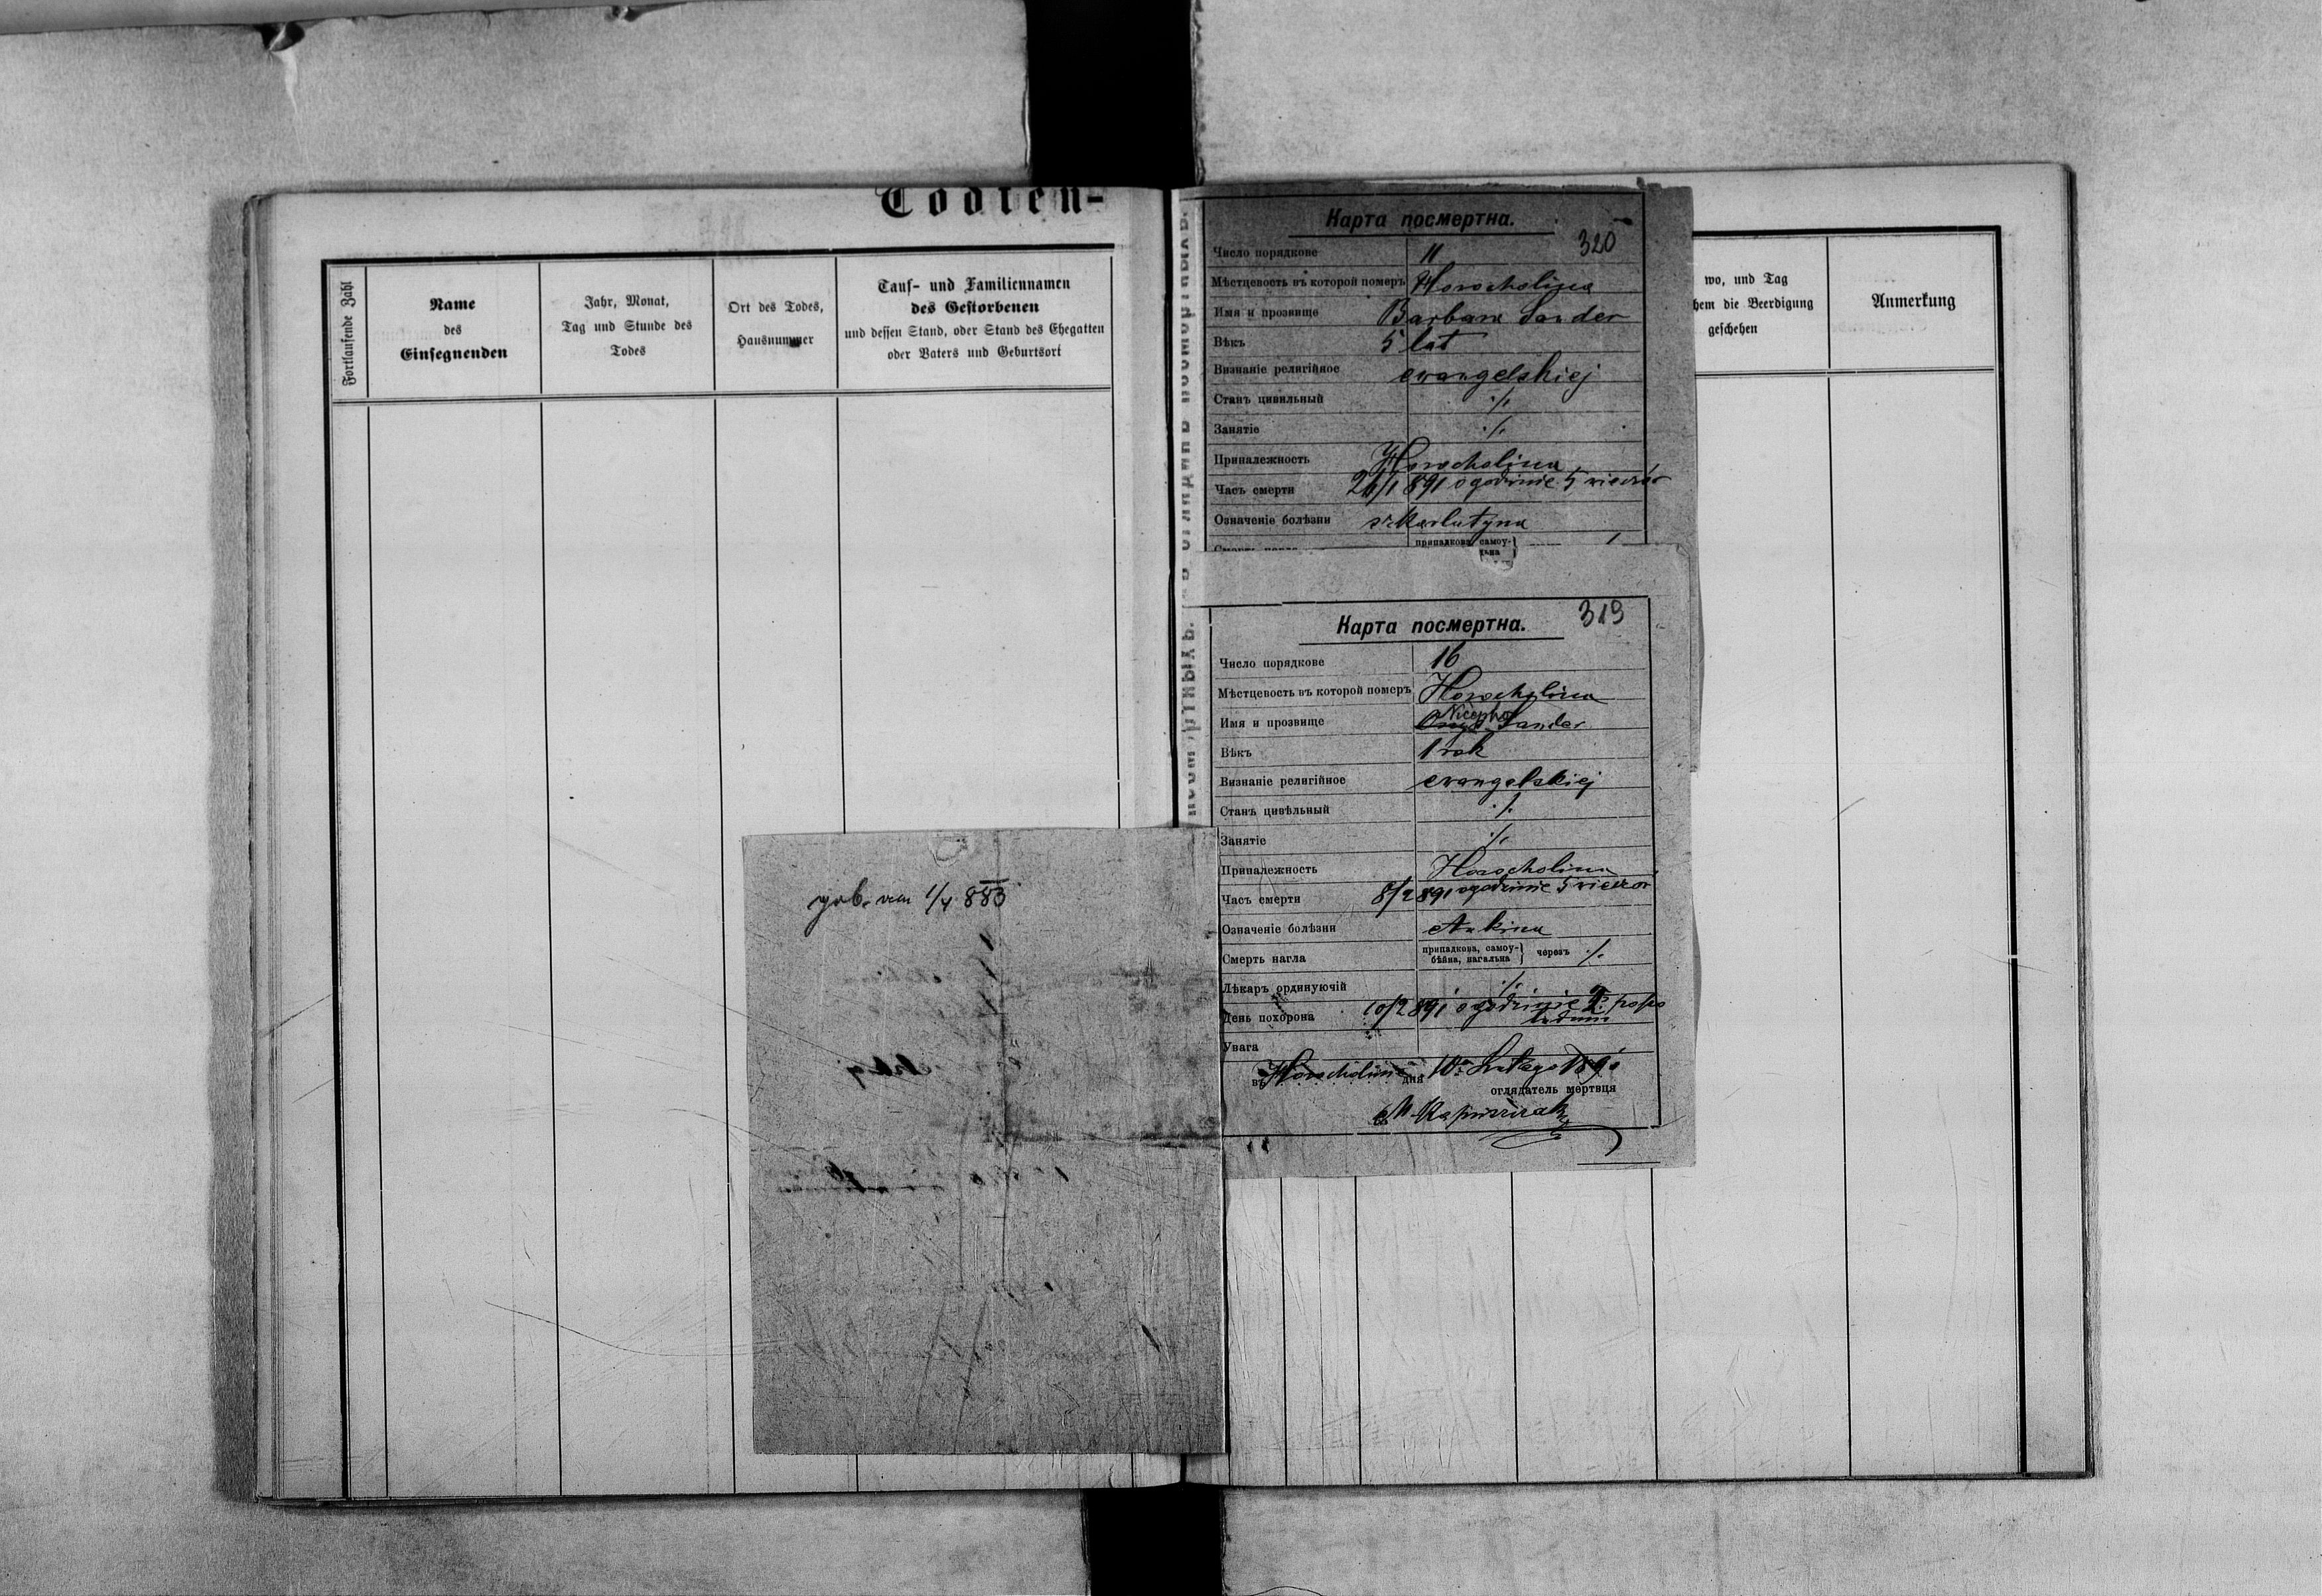 Todten-
Fortlaufende Zahl
Name
des
Einsegnenden
Jahr, Monat,
Tag und Stunde des
Todes
Ort des Todes,
Hausnummer
Tauf- und Familiennamen
des Gestorbenen
und dessen Stand, oder Stand des Ehegatten
oder Vaters und Geburtsort
wo, und Tag
hem die Beerdigung
geschehen
Anmerkung
Карта посмертна.
320
Число порядкове 11
Мѣстцевость въ которой померъ Horocholina
Имя и прозвище Barbara Sander
Вѣкъ 5 lat
Визнаніе религійное ewangelskiej
Станъ цивильный ·/.
Занятіе ·/.
Приналежность Horocholina
Часъ смерти /1 891 o godzinie 5 wieczór
Означеніе болѣзни szkarlatyna
припадкова, самоу-
Карта посмертна.
319
Число порядкове 16
Мѣстцевость въ которой померъ Horocholina
Nicephor
Имя и прозвище Sander
Вѣкъ 1 rok
Визнаніе религійное ewangelskiej
Станъ цивѣльный ·/.
Занятіе ·/.
Приналежность Horocholina
Часъ смерти 8/2 891 o godzinie 5 wieczór
Означеніе болѣзни
Смерть нагла припадкова, самоу-
бѣйна, нагальна } черезъ ·/.
Лѣкарь ординуючій ·/.
День похорона 10/2 891 o godzinie 2 popo
ludniu
Увага
въ Horocholina дня 10 Lutego 1891
оглядатель мертвця
geb. am 1/4 883